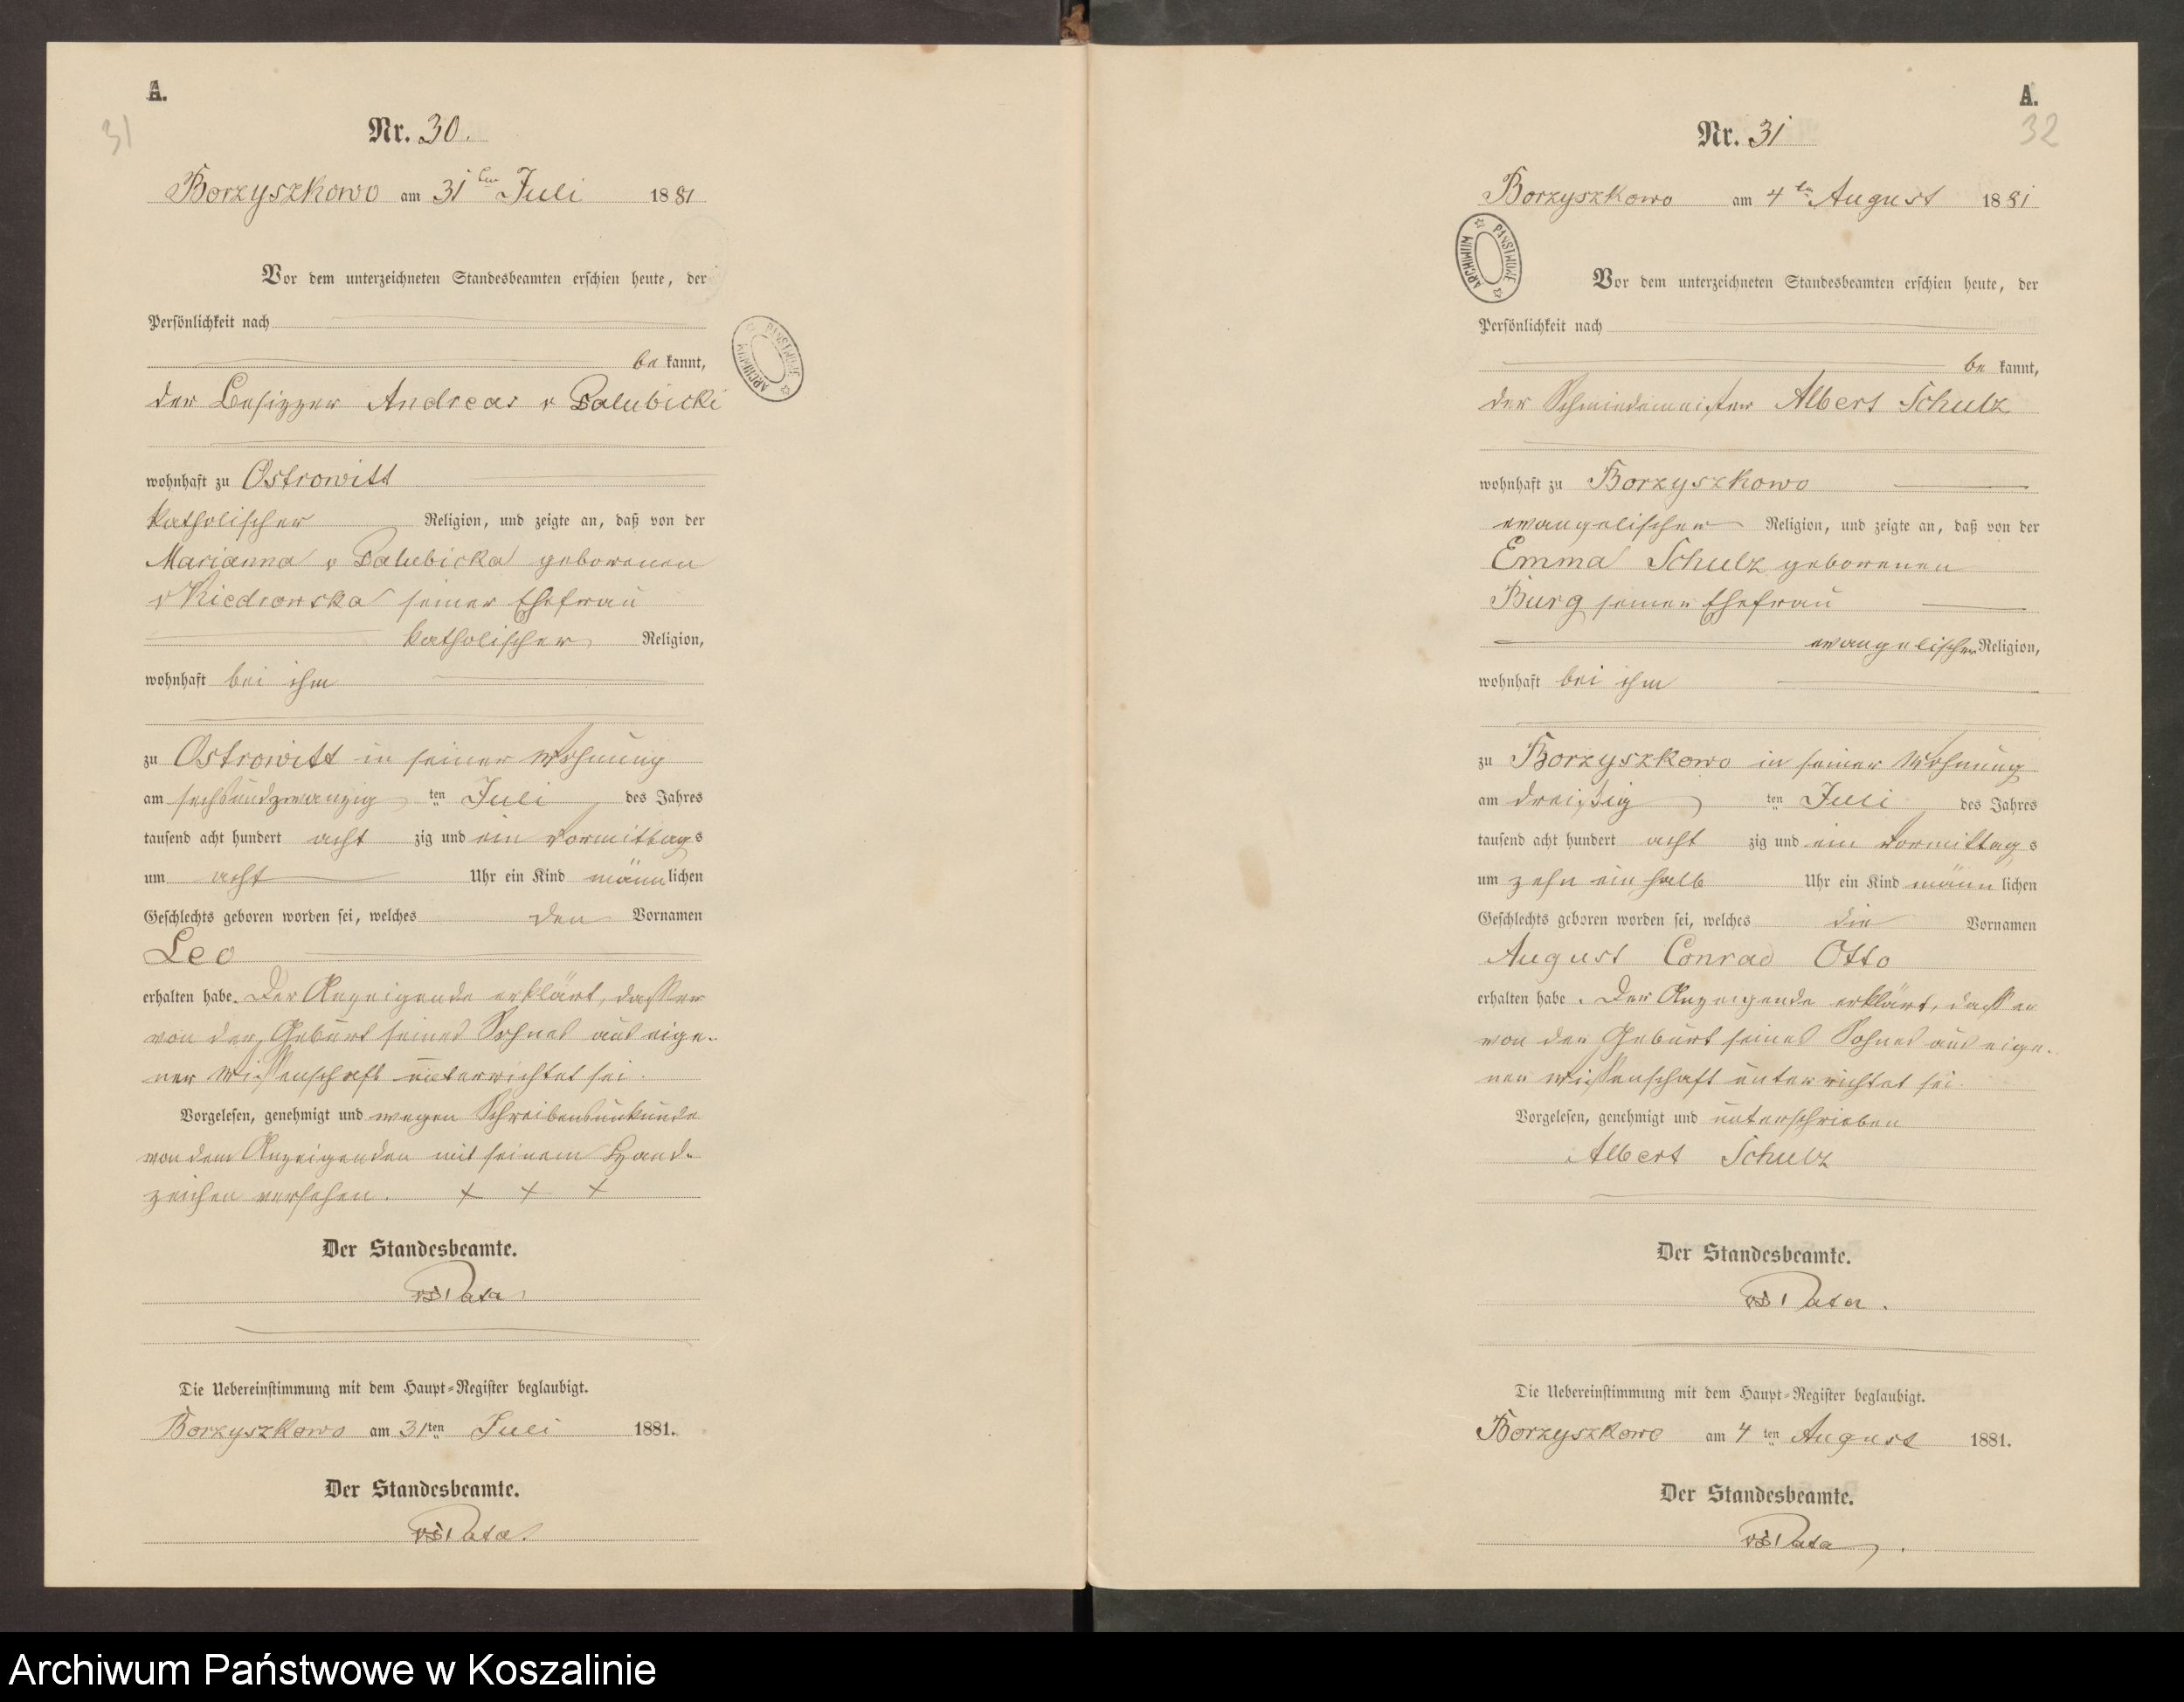 A.
31
Nr. 30.
Borzyszkowo am 31ten Juli 1881
Vor dem unterzeichneten Standesbeamten erschien heute, der
Persönlichkeit nach
be kannt,
der Besizzer Andreas v Palubicki
wohnhaft zu Ostrowitt
katholischer Religion, und zeigte an, daß von der
Marianna v Palubicka geborenen
v Kiedrowska seiner Ehefrau
katholischer Religion,
wohnhaft bei ihm
zu Ostrowitt in seiner Wohnung
am sechsundzwanzig ten Juli des Jahres
tausend acht hundert acht zig und ein vormittags
um acht Uhr ein Kind männlichen
Geschlechts geboren worden sei, welches den Vornamen
Leo
erhalten habe. Der Anzeigende erklärt, dasser
von der Geburt seines Sohnes aus eige-
ner Wissenschaft unterrichtet sei.
Vorgelesen, genehmigt und wegen Schreibensunkunde
von dem Anzeigenden mit seinem Hand-
zeichen versehen. + + +
Der Standesbeamte.
Die Uebereinstimmung mit dem Haupt-Register beglaubigt.
Borzyszkowo am 31ten Juli 1881.
Der Standesbeamte.
ARCHIWUM PAŃSTWOWE
A.
32
Nr. 31
Borzyszkowo am 4ten August 1881
ARCHIWUM PAŃSTWOWE
Vor dem unterzeichneten Standesbeamten erschien heute, der
Persönlichkeit nach
be kannt,
der Schmiedemeister Albert Schulz
wohnhaft zu Borzyszkowo
evangelischer Religion, und zeigte an, daß von der
Emma Schulz geborenen
Burg seiner Ehefrau
evangelischer Religion,
wohnhaft bei ihm
zu Borzyszkowo in seiner Wohnung
am dreißig ten Juli des Jahres
tausend acht hundert acht zig und ein vormittags
um zehn ein halb Uhr ein Kind männ lichen
Geschlechts geboren worden sei, welches die Vornamen
August Conrad Otto
erhalten habe. Der Anzeigende erklärt, dass er
von der Geburt seines Sohnes aus eige-
ner Wissenschaft unterrichtet sei.
Vorgelesen, genehmigt und unterschrieben
Albert Schulz
Der Standesbeamte.
Die Uebereinstimmung mit dem Haupt-Register beglaubigt.
Borzyszkowo am 4ten August 1881.
Der Standesbeamte.
Archiwum Państwowe w Koszalinie